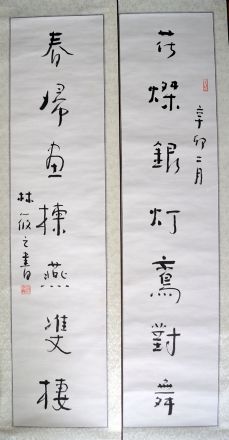 花燦銀灯鸞對舞
辛卯二月
春歸画棟燕雙棲
林筱之書